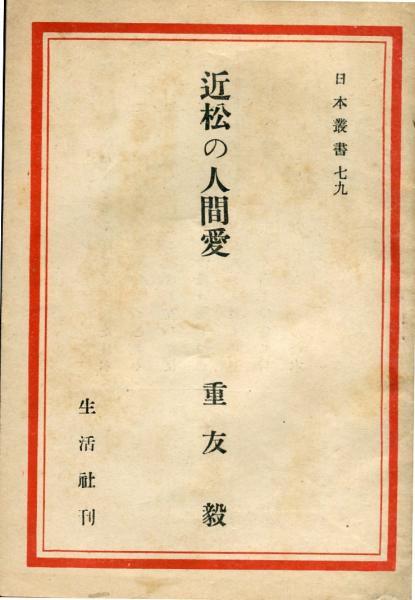 日本叢書七九
近松の人間愛
重友毅
生活社刊